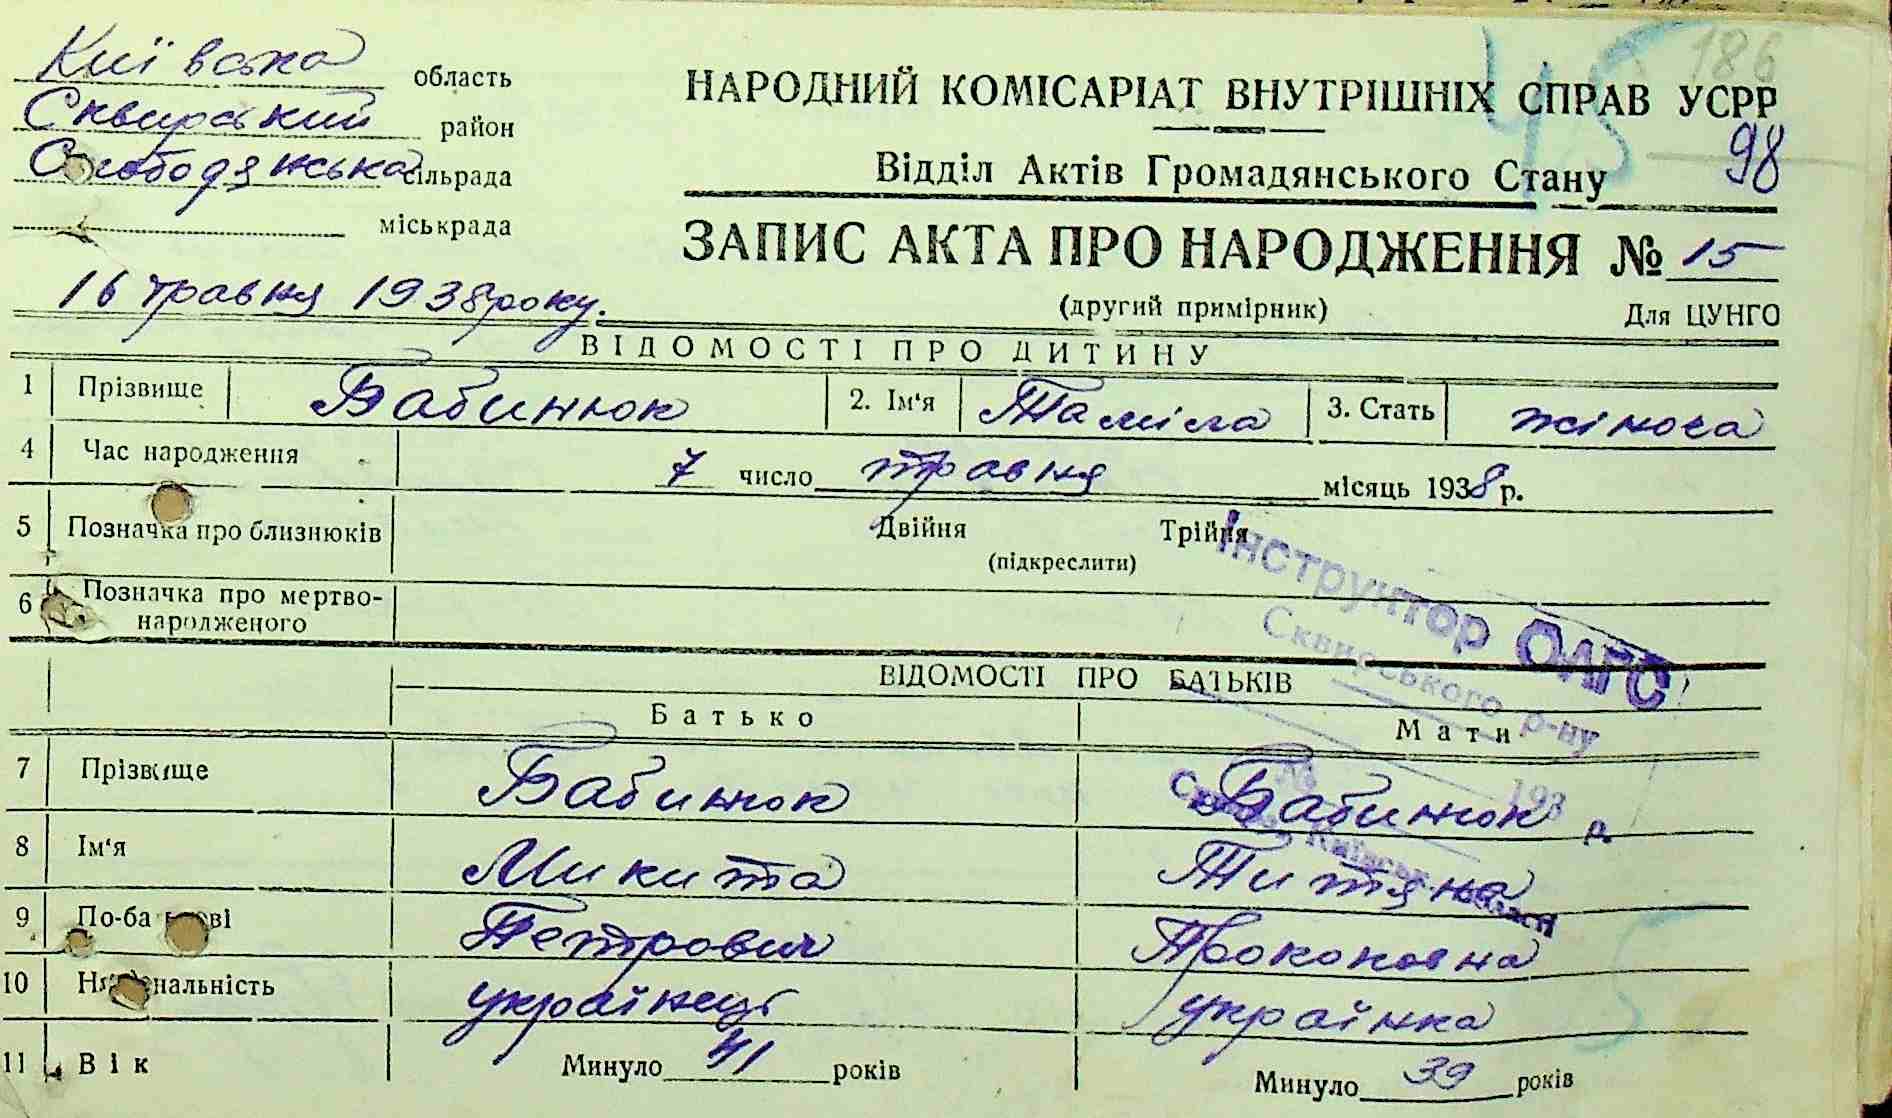 186
45
Київська область
Сквирський район
Слободянська сільрада
міськрада
НАРОДНИЙ КОМІСАРІАТ ВНУТРІШНІХ СПРАВ УСРР
98
Відділ Актів Громадянського Стану
ЗАПИС АКТА ПРО НАРОДЖЕННЯ № 15
16 травня 1938 року.
(другий примірник) Для ЦУНГО
ВІДОМОСТІ ПРО ДИТИНУ
1 Прізвище Бабинюк 2. Ім'я Таміла 3. Стать жіноча
4 Час народження 7 число травня місяць 1938 р.
5 Позначка про близнюків Двійня Трійня
(підкреслити)
6 Позначка про мертво-
народженого
Інструктор ОАГС
Сквирського р-ну
ВІДОМОСТІ ПРО БАТЬКІВ
Батько Мати
7 Прізвище Бабинюк Бабинюк
193 р.
8 Ім'я Микита Титяна
9 По-батькові Петрович Прокоповна
10 Національність українець українка
11 Вік Минуло 41 років Минуло 39 років